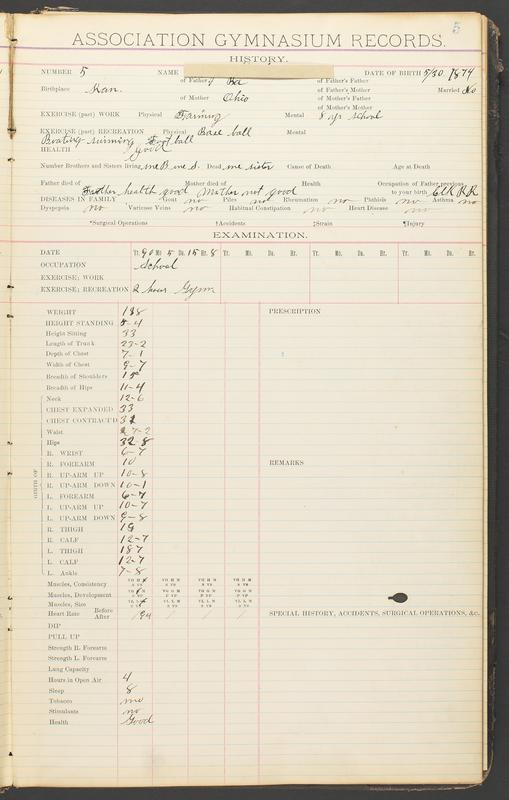 5
ASSOCIATION GYMNASIUM RECORDS.
HISTORY.
NUMBER 5 NAME DATE OF BIRTH 5/30 1874
of Father of Father's Father
Birthplace Kan. of Father's Mother Married No
of Mother Ohio of Mother's Father
of Mother's Mother
EXERCISE (part) WORK Physical Farming Mental 8 yrs school
EXERCISE (part) RECREATION Physical Base ball Mental
Boating running Foot ball
HEALTH good
Number Brothers and Sisters living one B one S. Dead one sister Cause of Death Age at Death
Father died of Mother died of Health Occupation of Father previous
Father health good Mother not good to your birth Clk R R
DISEASES IN FAMILY Gout no Piles no Rheumatism no Phthisis no Asthma no
Dyspepsia no Varicose Veins no Habitual Constipation no Heart Disease no
*Surgical Operations †Accidents ‡Strain ¶Injury
EXAMINATION.
DATE Yr. 90 Mo. 5 Da. 15 Hr. 8 Yr. Mo. Da. Hr. Yr. Mo. Da. Hr. Yr. Mo. Da. Hr.
OCCUPATION School
EXERCISE: WORK
EXERCISE: RECREATION 2 hours Gym
WEIGHT PRESCRIPTION
HEIGHT STANDING 5-4
Height Sitting 33
Length of Trunk 23-2
Depth of Chest 7-1
Width of Chest 9-7
Breadth of Shoulders 15
Breadth of Hips 11-4
GIRTH OF
Neck 12-6
CHEST EXPANDED 33
CHEST CONTRACT'D
Waist
Hips 32-8
R. WRIST 6-7
R. FOREARM 10 REMARKS
R. UP-ARM UP 10-8
R. UP-ARM DOWN 10-1
L. FOREARM 6-7
L. UP-ARM UP 10-7
L. UP-ARM DOWN 9-8
R. THIGH 19
R. CALF 12-7
L. THIGH 187
L. CALF 12-7
L. Ankle 7-8
Muscles, Consistency
Muscles, Development
Muscles, Size
Heart Rate Before After SPECIAL HISTORY, ACCIDENTS, SURGICAL OPERATIONS, &c.
DIP
PULL UP
Strength R. Forearm
Strength L. Forearm
Lung Capacity
Hours in Open Air 4
Sleep 8
Tobacco no
Stimulants no
Health Good